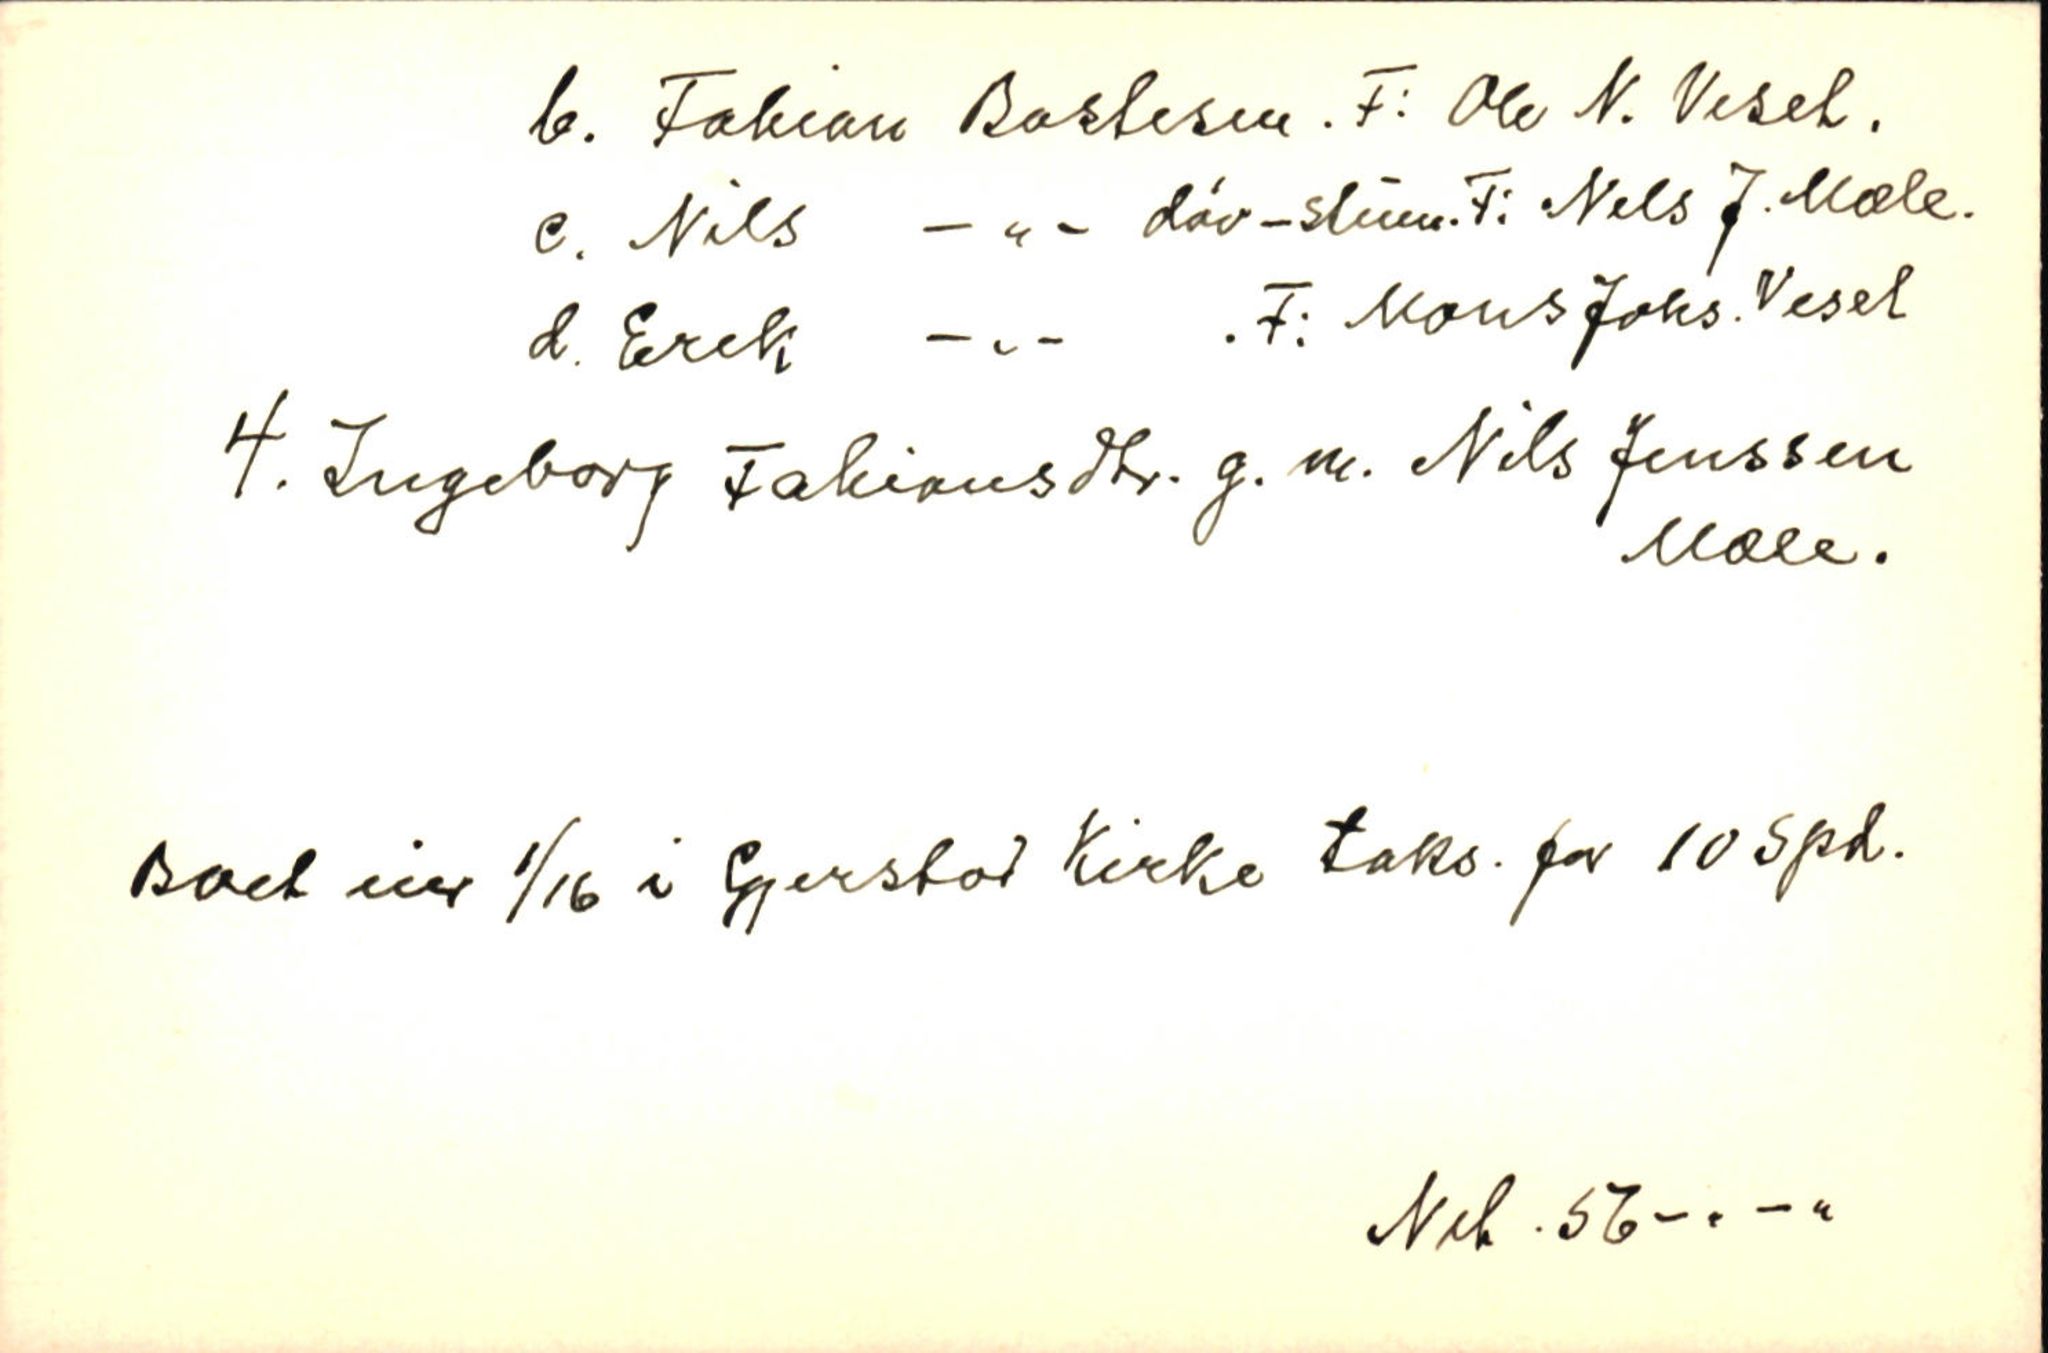 b. Fabian Bastesen. F: Ole N. Veset.
c. Nils - " - döv-stum. F: Nels J. Mæle.
d. Erek - " - . F: Mons Joks. Vesel
4. Ingeborg Fabiansdtr. g. m. Nils Jenssen
Mæle.
Boet eier 1/16 i Gjerstad Kirke taks. for 10 Spd.
Net. 56 - " - "